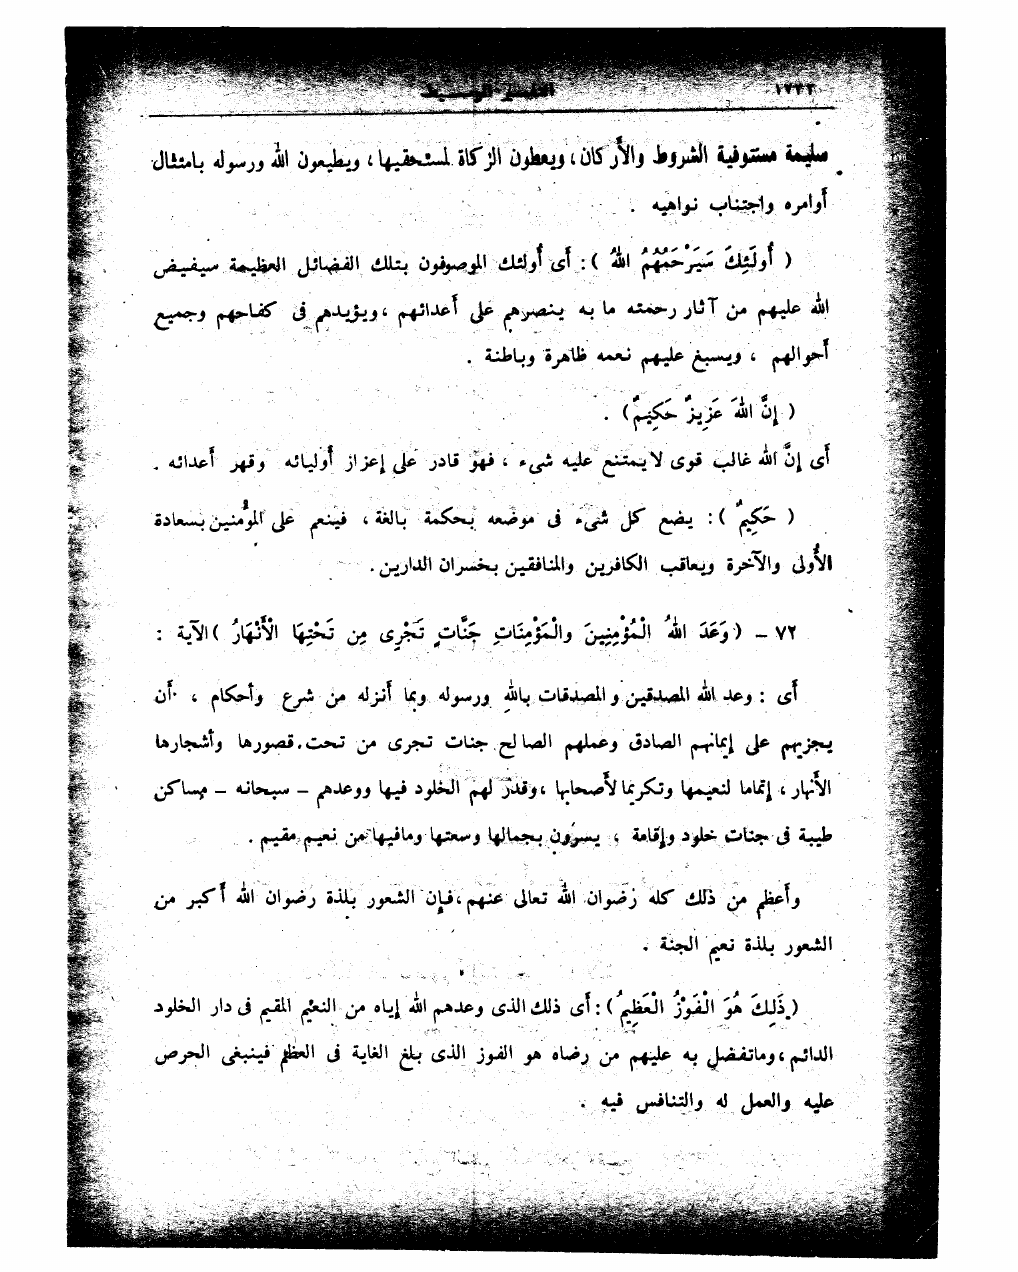 ١٧٢٢
التفسير الوسيط
سليمة مستوفية الشروط والأركان، ويعطون الزكاة لمستحقيها، ويطيعون الله ورسوله بامتثال
أوامره واجتناب نواهيه .
( أُولَئِكَ سَيَرْحَمُهُمُ اللهُ ) : أى أولئك الموصوفون بتلك الفضائل العظيمة سيفيض
الله عليهم من آثار رحمته ما به ينصرهم على أعدائهم ، ويؤيدهم فى كفاحهم وجميع
أحوالهم ، ويسبغ عليهم نعمه ظاهرة وباطنة .
( إِنَّ اللهَ عَزِيزٌ حَكِيمٌ ) .
أى إنَّ الله غالب قوى لا يمتنع عليه شىء ، فهو قادر على إعزاز أوليائه وقهر أعدائه .
( حَكِيمٌ ) : يضع كل شىء فى موضعه بحكمة بالغة ، فينعم على المؤمنين بسعادة
الأُولى والآخرة ويعاقب الكافرين والمنافقين بخسران الدارين .
٧٢ – ( وَعَدَ اللهُ الْمُؤْمِنِينَ والْمُؤْمِنَاتِ جَنَّاتٍ تَجْرِى مِن تَحْتِهَا الْأَنْهَارُ ) الآية :
أى : وعد الله المصدقين والمصدقات باللهِ ورسوله وبما أنزله من شرع وأحكام ، أن
يجزيهم على إيمانهم الصادق وعملهم الصالح جنات تجرى من تحت قصورها وأشجارها
الأنهار ، إتماما لنعيمها وتكريما لأصحابها ، وقدَّر لهم الخلود فيها ووعدهم – سبحانه – مساكن
طيبة فى جنات خلود وإقامة ، يسرّون بجمالها وسعتها ومافيها من نعيم مقيم .
وأعظم من ذلك كله رضوان الله تعالى عنهم ، فإن الشعور بلذة رضوان الله أكبر من
الشعور بلذة نعيم الجنة .
( ذَلِكَ هُوَ الْفَوْزُ الْعَظِيمُ ) : أى ذلك الذى وعدهم الله إياه من النعيم المقيم فى دار الخلود
الدائم ، وماتفضل به عليهم من رضاه هو الفوز الذى بلغ الغاية فى العظم فينبغى الحرص
عليه والعمل له والتنافس فيه .